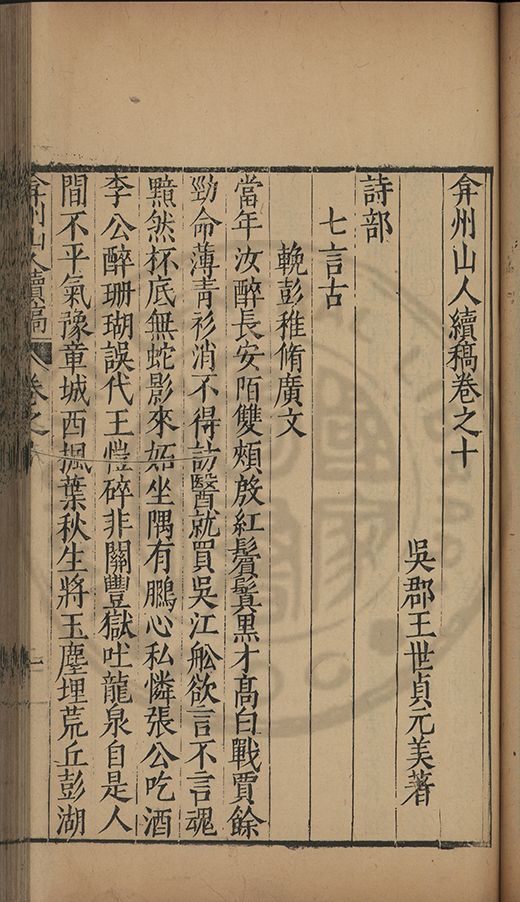 弇州山人續稿卷之十
吳郡王世貞元美著
詩部
七言古
輓彭稚脩廣文
當年汝醉長安陌雙頰殷紅鬢鬒黑才髙白戰賈餘
勁命薄青衫消不得訪醫就買吳江舩欲言不言魂
黯然杯底無蛇影來妬坐隅有鵩心私憐張公吃酒
李公醉珊瑚誤代王愷碎非關豐獄吐龍泉自是人
間不平氣豫章城西楓葉秋生將玉塵埋荒丘彭湖
弇州山人續稿 卷之